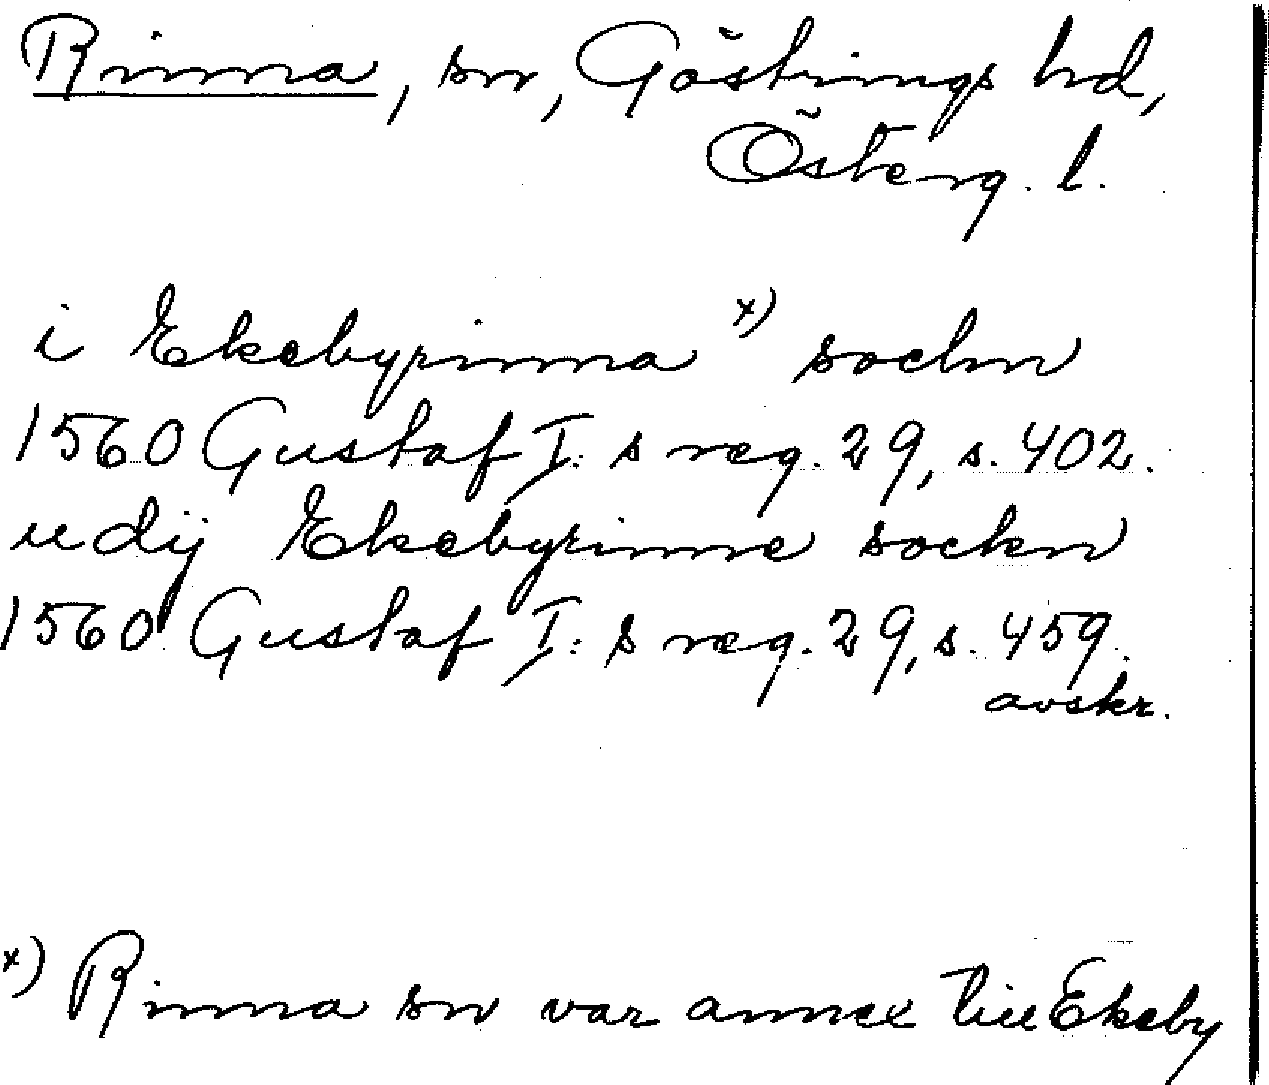 Rinna, sn, Göstrings hd,
Österg. l.
i Ekebyrinna x) sockn
1560 Gustaf I:s reg. 29, s. 402.
udij Ekebyrinne sockn
1560 Gustaf I:s reg. 29, s. 459.
avskr.
x) Rinna sn var annex till Ekeby